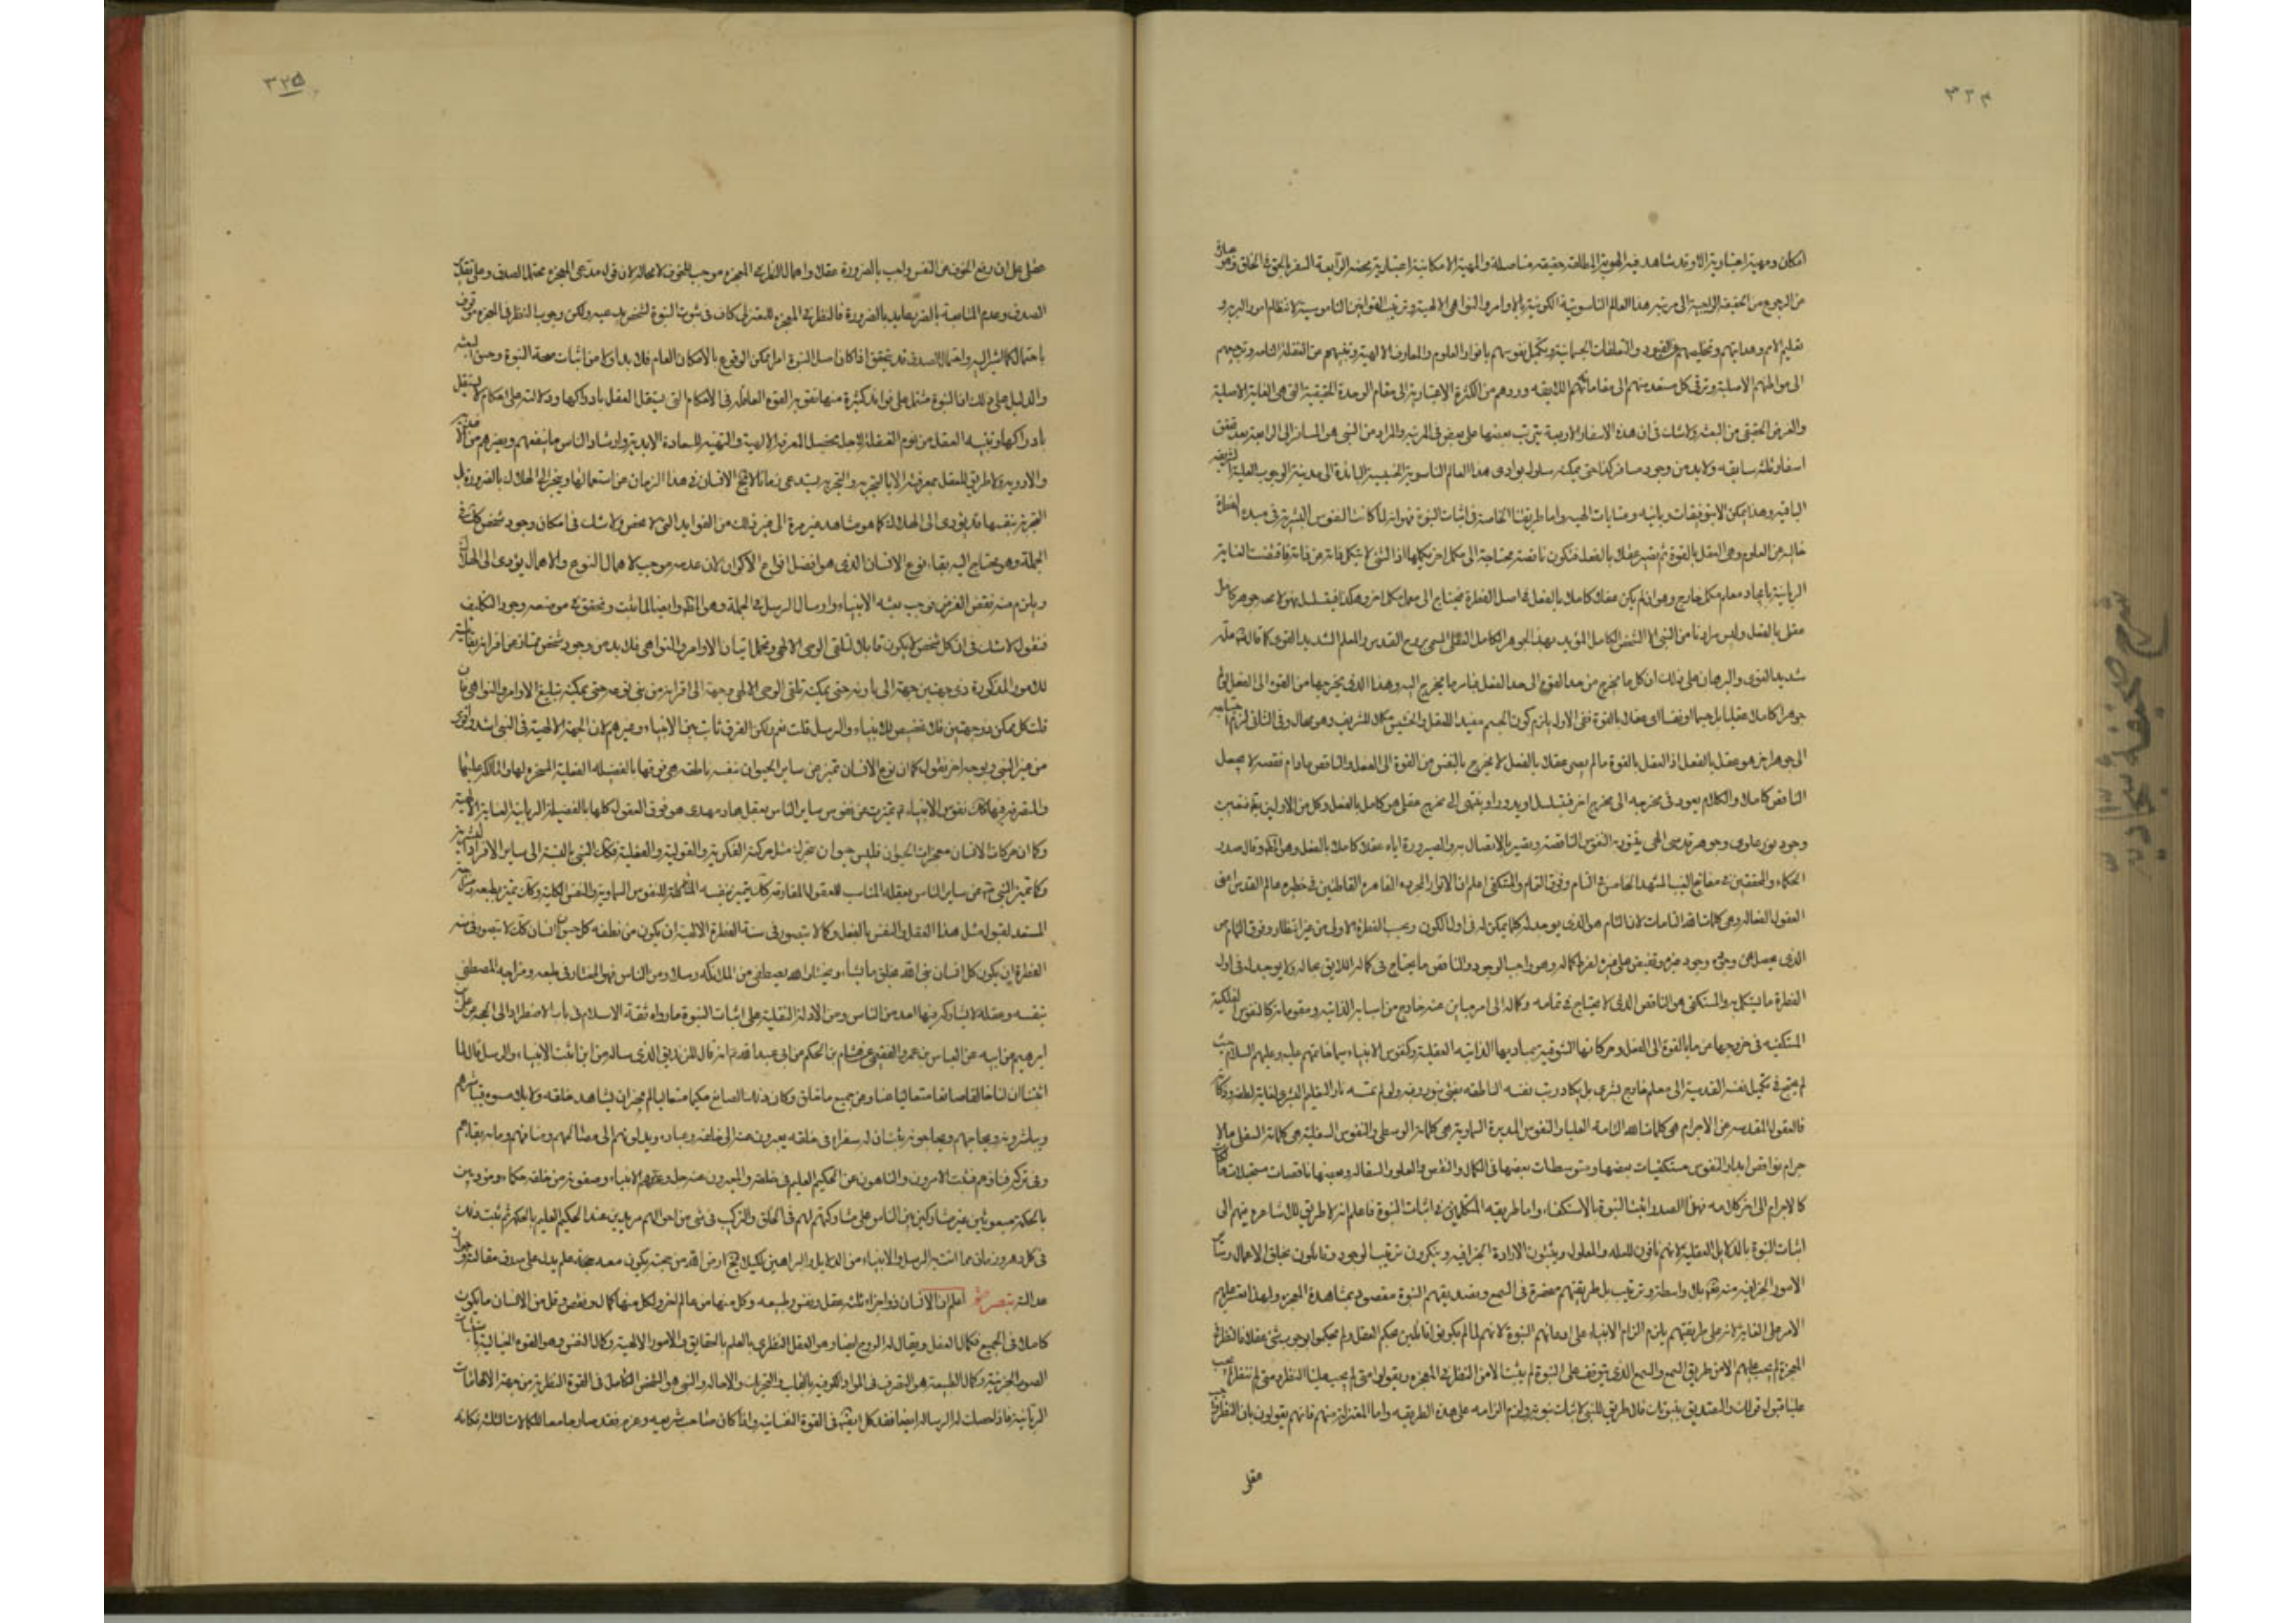 ٣٢٤
امكان ومهية اعتبارية الا وقد شاهد فيه الهوية المطلقة حقيقة متاصلة والمهية الامكانية اعتبارية محضة الرابعة السفر بالحق في الخلق وهو عبارة
من الرجوع من الحقيقة الواجبة الى مرتبة هذا العالم الناسوتية الكونية بالاوامر والنواهي الالهية وترتيب القوانين الناموسية لانتظام امور البرية و
تعليم الامم وهدايتهم وتخليصهم عن القيود والتعلقات الجسمانية وتكميل نفوسهم بانوار العلوم والمعارف الالهية وتنبيههم من الغفلة التامة وترجيعهم
الى مواطنهم الاصلية وترقى كل مستعد منهم الى مقاماتهم اللايقه وردهم من الكثرة الاعتبارية الى مقام الوحدة الحقيقية التي هي الغاية الاصلية
والغرض الحقيقي من البعثة ولا شك في ان هذه الاسفار الاربعة يترتب بعضها على بعض في المرتبه والمراد من النبي هو المسافر الى الرابعة بعد تحقق
اسفار ثلثه سابقه ولا بد من وجود مسافر كذا حتى يمكنه سلوك بوادى هذا العالم الناسوتية الخسيسة البائدة الى مدينة الوجوب العلية الشريفه
الباقيه وهذا يمكن الا بتوفيقات ربانيه وعنايات الهيه واما طريقتنا الخاصة في اثبات النبوة فهو انه لما كانت النفوس البشرية في مبدء الفطرة
خالية عن العلوم وهي العقل بالقوة ثم يصير عقلا بالفعل فتكون ناقصة محتاجة الى مكمل اخر يكملها اذ الشئ لا يتكمل ذاته عن ذاته فاقتضت العناية
الربانية بايجاد معلم مكمل خارج وهو ان لم يكن عقلا كاملا بالفعل في اصل الفطرة فيحتاج الى معلم مكمل اخر وهكذا فيتسلسل فهو لا محه جوهر كامل
عقل بالفعل وليس مرادنا من النبي الا الشخص الكامل المؤيد بهذا الجوهر الكامل العقلي المسمى بروح القدس والمعلم الشديد القوى كما قال الله علمه
شديد القوى والبرهان على ذلك ان كل ما يخرج من حد القوة الى حد الفعل فبامر ما يخرج اليه وهذا الذى يخرجها من القوه الى الفعل ان لم
جوهرا كاملا عقليا بل جسما او نفسا اى عقلا بالقوة ففي الاول يلزم كون الجسم مفيدا للعقل والخسيس مكملا للشريف وهو محال وفي الثاني لزم احتياجه
الى جوهر اخر هو عقل بالفعل اذ العقل بالقوة ما لم يصر عقلا بالفعل لا يخرج بالنفس من القوة الى الفعل والناقص ما دام نقصه لا يجعل
الناقص كاملا والكلام يعود في مخرجه الى مخرج اخر فيتسلسل او يدور او ينتهى الى مخرج عقلي هو كامل بالفعل وكل من الاولين
وجود نورى علوى وجوهر قدسي الهي يتقوى به النفوس الناقصة وبصير بالاتصال به والصيرورة اياه عقلا كاملا بالفعل وهو الله وقال صدر
الحكماء والمحققين في مفاتيح الغيب المشهد الخامس في التام وفوق التام والمستكفى اعلم ان الانوار المجرده القاهره القاطنين في حظيره عالم القدس اعنى
العقول الفعاله وهي كلمات الله التامات لان التام هو الذى يوجد له كلما يمكن له في اول الكون وبحسب الفطرة الاولى من غير انتظار وفوق التمام هو
الذى يفضل عن وجوده وجود غيره ويفيض على غيره لفرط كماله وهو واجب الوجود والناقص ما يحتاج في كماله اللايق بحاله ولا يوجد له في اول
الفطرة ما يستكمل به والمستكفى هو الناقص الذى لا يحتاج في تمامه وكماله الى امر مباين عنه خارج من اسبابه الذاتيه ومقوماته كالنفوس الفلكيه
المستكفيه في خروجها من ما بالقوة الى الفعل وحركاتها الشوقيه بمباديها الذاتيه العقلية وكنفوس الانبياء سيما خاتمهم عليه وعليهم السلام حيث
لم يحتج في تكميل نفسه القدسية الى معلم خارج بشرى بل يكاد زيت نفسه الناطقه يضئ بنور ربه ولو لم تمسسه نار التعليم البشرى لغاية لطفه وذكائه
فالعقول المقدسه عن الاجرام هي كلمات الله التامه العليا والنفوس المدبرة السماوية هي كلماته الوسطى والنفوس السفلية هي كلماته السفلى والا
جرام نواقص ابدا والنفوس مستكفيات بعضها ومتوسطات بعضها في الكمال والنقص والعلو والسفاله وبعضها ناقصات مستحيلات
كالاجرام الى اخر كلامه فهذا الصدر اثبت النبوة بالاستكفاء واما طريقه المتكلمين في اثبات النبوة فاعلم انه لا طريق للاشاعره منهم الى
اثبات النبوة بالدلايل العقلية لانهم نافون للعله والمعلول ويثبتون الارادة الجزافيه وينكرون ترتيب الوجود وقايلون بخلق الاعمال وساير
الامور الجزافيه منه تعالى بلا واسطة وترتيب بل طريقتهم منحصرة في السمع وتصديقهم النبوة مقصور بمشاهدة المعجزه ولهذا اعترض عليهم
الامر على الغاية لانه على طريقتهم يلزم الزام الانبياء على ادعائهم النبوة لانهم لما لم يكونوا قائلين بحكم العقل ولم يحكموا بوجوب شئ عقلا فالنظر في
المعجزة لم يجب عليهم الا من طريق السمع والسمع الذى يتوقف على النبوة لم يثبت الا من النظر في المعجزه ويقولوا متى لم يجب علينا النظر ومتى لم ننظر لم يجب
علينا قبول قولك والتصديق بنبوتك فلا طريق للنبي لاثبات نبوته ولزم الزامه على هذه الطريقه واما المعتزلة منهم فانهم يقولون بان النظر واجب
عقلى
شرح صحيفه سجاديه
٣٢٥
عقلى على ان دفع الخوف عن النفس واجب بالضرورة عقلا واهمال النظر في المعجزه موجب للخوف لا محالة لان قول مدعى المعجزه محتمل الصدق وعلى تقدير
الصدق وعدم المتابعة بالضرر عايد بالضرورة فالنظر في المعجزه للمعتزلى كاف في ثبوت النبوة لشخص يدعيه ولكن وجوب النظر في المعجزه موقوف
باحتمال كما اشير اليه واحتمال الصدق قد يتحقق اذا كان اصل النبوة امرا يمكن الوقوع بالامكان العام فلا بد اولا من اثبات صحة النبوة وحسن البعثه
والدليل على ذلك ان النبوة مشتمل على فوايد كثيرة منها تقويه القوة العاقله في الاحكام التي يستقل العقل بادراكها ودلالته على احكام لا يستقل
بادراكها وتنبيه العقل من نوم الغفلة لاجل تحصيل المعرفة الالهية والتهيئه للسعادة الابدية وارشاد الناس ما ينفعهم ويضرهم من الاغذيه
والادويه ولا طريق للعقل بمعرفته الا بالتجربه والتجربه يستدعى زمانا لا يقع الانسان في هذا الزمان من استعمالها وينجر الى الهلاك بالضرورة بل
التجربة بنفسها قد يؤدى الى الهلاك كما هو مشاهد غير مرة الى غير ذلك من الفوايد التي لا تحصى ولا شك في امكان وجود شخص كذا في
الجملة وهو يحتاج اليه بقاء نوع الانسان الذى هو افضل انواع الاكوان لان عدمه موجب لاهمال النوع والاهمال يؤدى الى الهلاك
ويلزم منه نقض الغرض فوجب بعثه الانبياء وارسال الرسل في الجملة وهو الله وايضا لما ثبت وتحقق في موضعه وجود التكليف
فنقول لا شك في ان كل شخص لا يكون قابلا لتلقى الوحى الالهى وتحمل اتيان الاوامر والنواهى فلا بد من وجود شخص ممتاز عن اقرانه بقابليته
للامور المذكورة ذى جهتين جهة الى باريه حتى يمكنه تلقى الوحى الالهى وجهة الى اقرانه من بنى نوعه حتى يمكنه تبليغ الاوامر والنواهى فان
قلت كل ممكن ذو جهتين فلا تخصيص للانبياء والرسل قلت نعم ولكن الفرق ثابت بين الانبياء وغيرهم لان الجهة الالهية في النبي اشد واقوى
من غير النبي وبوجه اخر نقول كما ان نوع الانسان تميز عن ساير الحيوان بنفسه ناطقه هي فوقها بالفضيله العقلية المسخره لها والمالكه عليها
والمتصرفة فيها كذلك نفوس الانبياء تميزت عن نفوس ساير الناس بعقل هاد مهدى هو فوق العقول كلها بالفضيلة الربانية العناية الالهية
وكما ان حركات الانسان معجزات الحيوان فليس حيوان يتحرك مثل حركته الفكرية والقولية والعقلية فكذلك النبي بالنسبة الى ساير الافراد البشرية
وكما تميز النبي عن ساير الناس بعقله المناسب للعقول المفارقه كذلك يتميز بنفسه للنفوس السماوية والنفس الكلية وكذلك تميز بطبعه ومزاجه
المستعد لقبول مثل هذا العقل والنفس بالفعل وكما لا يتصور في سنة الفطرة الالهيه ان يكون من نطفه كل حيوان انسان كذلك لا يتصور في سنه
الفطرة ان يكون كل انسان نبى الله يخلق ما يشاء ويختار الله يصطفى من الملائكه رسلا ومن الناس فهو المختار في طبعه ومزاجه المصطفى
بنفسه وعقله لا يشاركه فيها احد من الناس ومن الادلة النقلية على اثبات النبوة ما رواه ثقة الاسلام في باب الاضطرار الى الحجه عن على بن
ابرهيم عن ابيه عن العباس بن عمرو الفقيمي عن هشام بن الحكم عن ابى عبد الله انه قال للزنديق الذى ساله من اين اثبت الانبياء والرسل قال انا لما
اثبتنا ان لنا خالقا صانعا متعاليا عنا وعن جميع ما خلق وكان ذلك الصانع حكيما متعاليا لم يجز ان يشاهده خلقه ولا يلامسوه فيباشرهم
ويباشروه ويحاجهم ويحاجوه ثبت ان له سفراء في خلقه يعبرون عنه الى خلقه وعباده ويدلونهم الى مصالحهم ومنافعهم وما به بقاءهم
وفي تركه فناؤهم فثبت الامرون والناهون عن الحكيم العليم في خلقه والمعبرون عنه جل وعز وهم الانبياء وصفوته من خلقه حكماء مؤدبين
بالحكمة مبعوثين بها غير مشاركين للناس على مشاركتهم لهم في الخلق والتركيب في شئ من احوالهم مؤيدين عند الحكيم العليم بالحكمة ثم ثبت ذلك
في كل دهر وزمان مما اتت به الرسل والانبياء من الدلايل والبراهين لكيلا تخلو ارض الله من حجة يكون معه علم يدل على صدق مقالته وجواز
عدالته تبصرة اعلم ان الانسان ذو اجزاء ثلثه عقل ونفس وطبيعه وكل منها من عالم اخر ولكل منها كمال ونقص وقل من الانسان ما يكون
كاملا في الجميع فكمال العقل ويقال له الروح ايضا وهو العقل النظرى بالعلم بالحقايق والامور الالهية وكمال النفس وهو القوه الخيالية باثبات
الصور الجزئية وكمال الطبيعة هو التصرف في المواد الكونيه بالقلب والتحريك والاحاله والنبي هو الشخص الكامل في القوة النظرية من جهة الافاضات
الربانية فاذا حصلت له الرساله ايضا فقد كمل ايضا في القوة النفسانيه واذا كان صاحب شريعه وعزم فقد صار جامعا للكمالات الثلثه فكانه